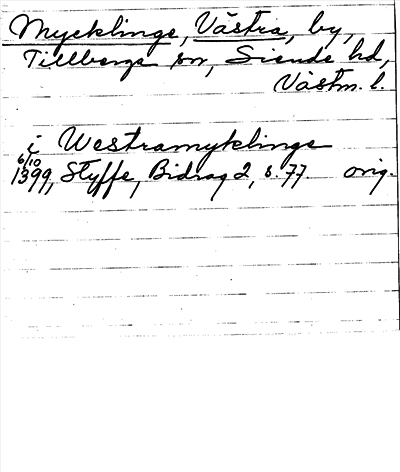 Mycklinge, Västra, by,
Tillberga sn, Siende hd,
Västm. l.
i Westramyklinge
6/10
1399, Styffe, Bidrag 2, s. 77. orig.